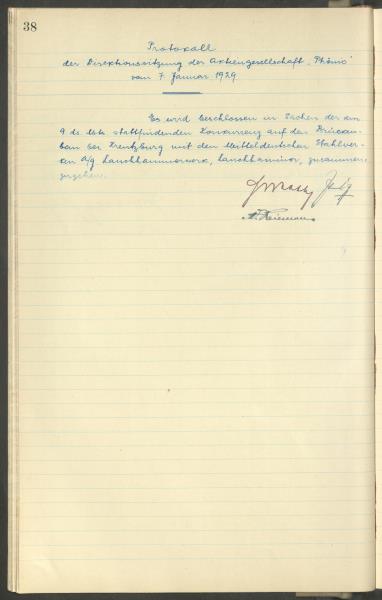 38
Protokoll
der Direktionssitzung der Aktiengesellschaft „Phönix"
vom 7. Januar 1929.
Es wird beschlossen in Sachen der am
9 ds. Mts. stattfindenden Konkurrenz auf den Brückenbau
bei Kreutzburg mit den Mitteldeutschen Stahlwerken
A/G Lauchhammerwerk, Lauchhammer, zusammen
zugehen.